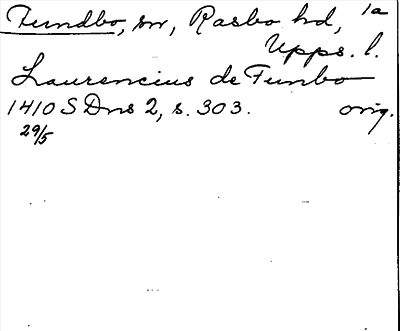 Fundbo, sn, Rasbo hd, 1a
Upps. l.
Laurencius de Funbo
1410 S Dns 2, s. 303. orig.
29/5